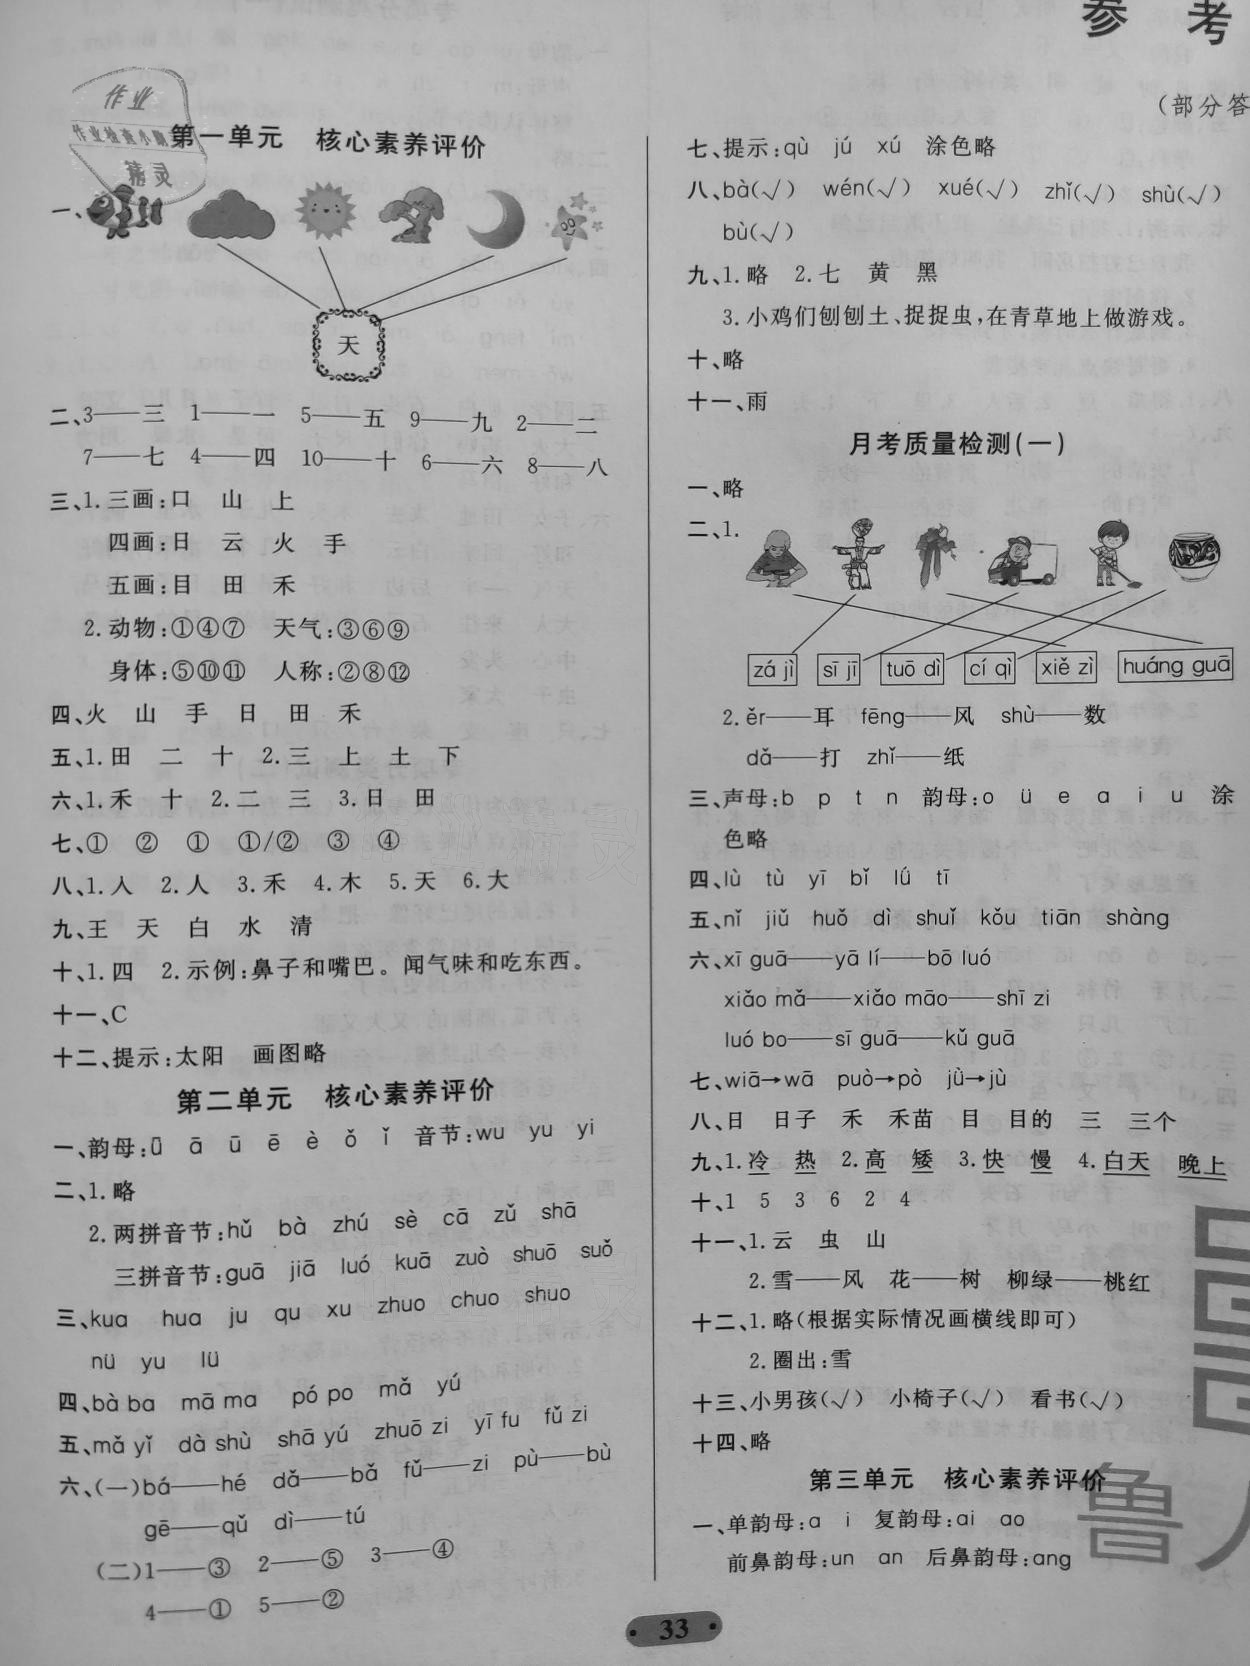 参 考
（部分答
作业
作业检查小
精灵
第一单元 核心素养评价
一、
天
二、3——三 1——一 5——五 9——九 2——二
7——七 4——四 10——十 6——六 8——八
三、1.三画:口 山 上
四画:日 云 火 手
五画:目 田 禾
2.动物:①④⑦ 天气:③⑥⑨
身体:⑤⑩⑪ 人称:②⑧⑫
四、火 山 手 日 田 禾
五、1.田 二 十 2.三 上 土 下
六、1.禾 十 2.二 三 3.日 田
七、① ② ① ①/② ③ ④
八、1.人 2.人 3.禾 4.木 5.天 6.大
九、王 天 白 水 清
十、1.四 2.示例:鼻子和嘴巴。闻气味和吃东西。
十一、C
十二、提示:太阳 画图略
第二单元 核心素养评价
一、韵母:ǖ ā ū ē è ǒ ǐ 音节:wu yu yi
二、1.略
2.两拼音节:hǔ bà zhú sè cā zǔ shā
三拼音节:guā jiā luó kuā zuò shuō suǒ
三、kua hua ju qu xu zhuo chuo shuo
nü yu lü
四、bà ba mā ma pó po mǎ yú
五、mǎ yǐ dà shù shā yú zhuō zi yī fu fǔ zi
六、(一)bá——hé dǎ——bǎ fǔ——zi pù——bù
gē——qǔ dì——tú
(二)1——③ 2——⑤ 3——④
4——① 5——②
七、提示:qù jú xú 涂色略
八、bà(√) wén(√) xué(√) zhǐ(√) shù(√)
bù(√)
九、1.略 2.七 黄 黑
3.小鸡们刨刨土、捉捉虫,在青草地上做游戏。
十、略
十一、雨
月考质量检测(一)
一、略
二、1.
zá jì sī jī tuō dì cí qì xiě zì huáng guā
2.ěr——耳 fēng——风 shù——数
dǎ——打 zhǐ——纸
三、声母:b p t n 韵母:o ü e a i u 涂
色略
四、lù tù yī bǐ lǘ tī
五、nǐ jiǔ huǒ dì shuǐ kǒu tiān shàng
六、xī guā——yā lí——bō luó
xiǎo mǎ——xiǎo māo——shī zi
luó bo——sī guā——kǔ guā
七、wiā→wā può→pò jǜ→jù
八、日 日子 禾 禾苗 目 目的 三 三个
九、1.冷 热 2.高 矮 3.快 慢 4.白天 晚上
十、1 5 3 6 2 4
十一、1.云 虫 山
2.雪——风 花——树 柳绿——桃红
十二、1.略(根据实际情况画横线即可)
2.圈出:雪
十三、小男孩(√) 小椅子(√) 看书(√)
十四、略
第三单元 核心素养评价
一、单韵母:a i 复韵母:ai ao
前鼻韵母:un an 后鼻韵母:ang
鲁
33